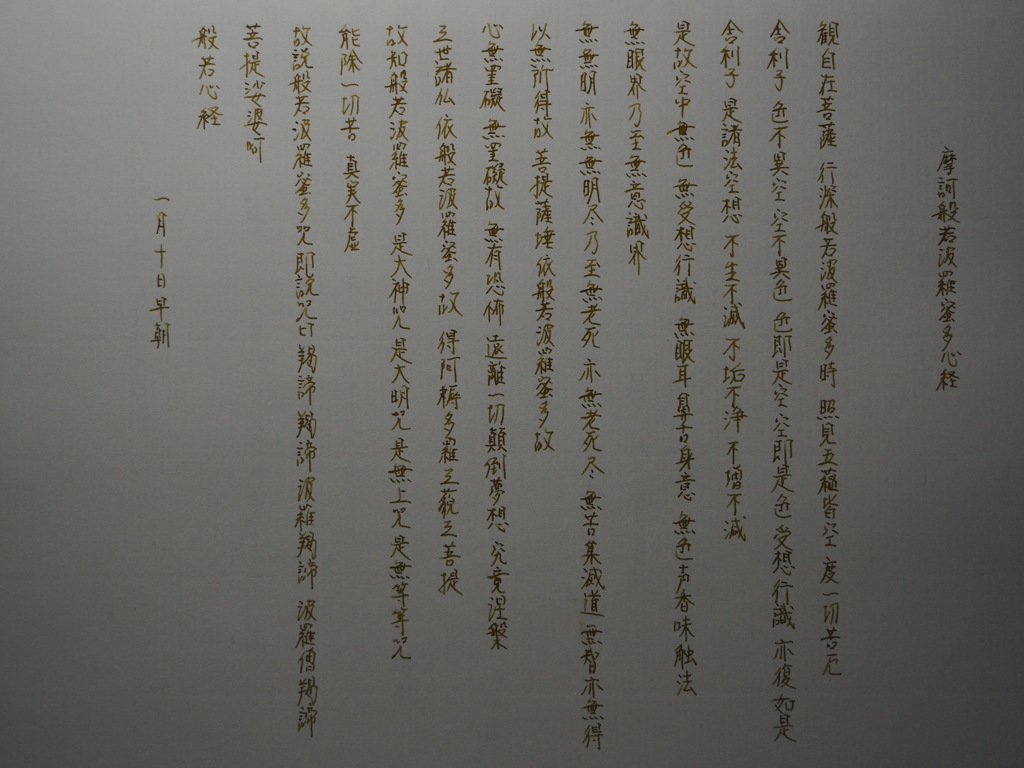 摩訶般若波羅蜜多心経
観自在菩薩 行深般若波羅蜜多時 照見五蘊皆空 度一切苦厄
舎利子 色不異空 空不異色 色即是空 空即是色 受想行識 亦復如是
舎利子 是諸法空想 不生不滅 不垢不浄 不増不減
是故空中無色 無受想行識 無眼耳鼻舌身意 無色声香味触法
無眼界乃至無意識界
無無明 亦無無明尽乃至無老死 亦無老死尽 無苦集滅道 無智亦無得
以無所得故 菩提薩埵 依般若波羅蜜多故
心無罣礙 無罣礙故 無有恐怖 遠離一切顛倒夢想 究竟涅槃
三世諸仏 依般若波羅蜜多故 得阿耨多羅三藐三菩提
故知般若波羅蜜多 是大神咒 是大明咒 是無上咒 是無等等咒
能除一切苦 真実不虚
故説般若波羅蜜多咒 即説咒曰 羯諦 羯諦 波羅羯諦 波羅僧羯諦
菩提娑婆訶
般若心経
一月十日早朝